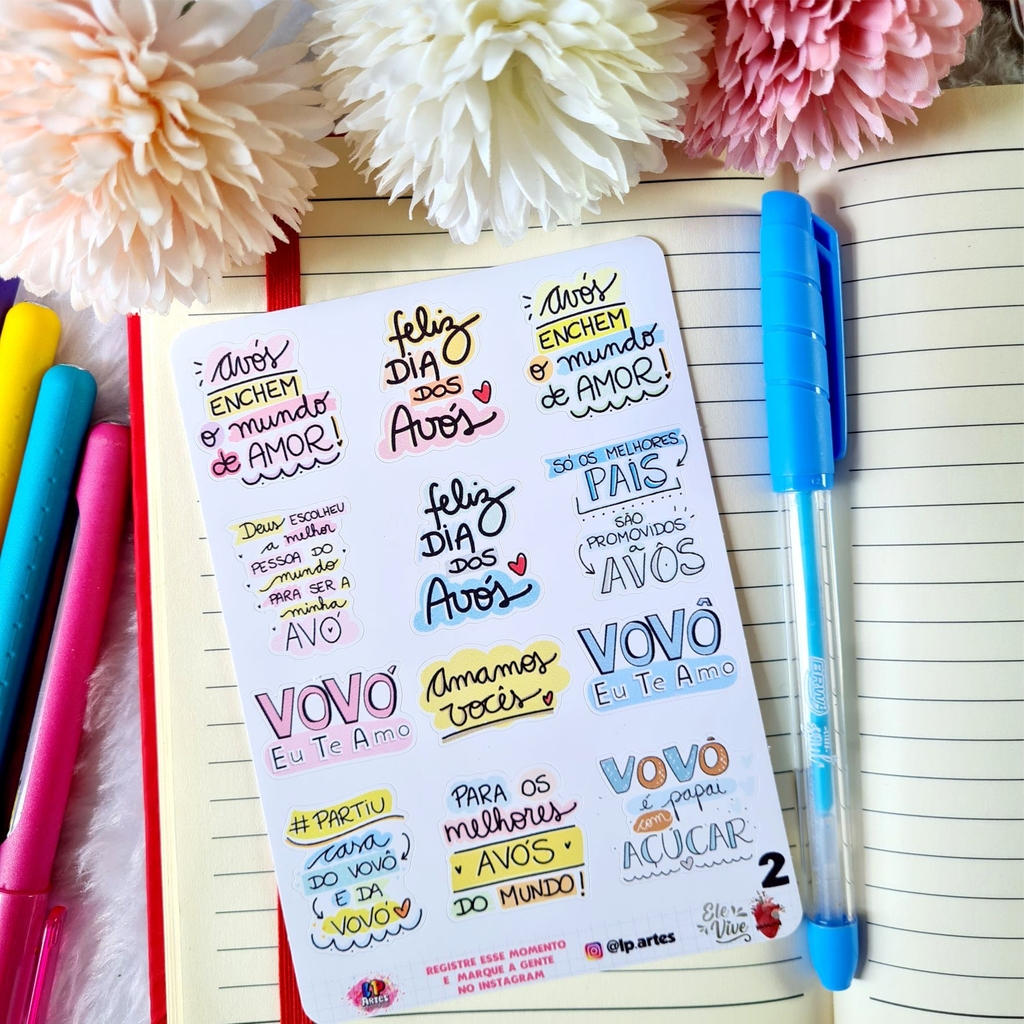 avós
ENCHEM
o mundo
de AMOR!
feliz
DIA
DOS
Avós
avós
ENCHEM
o mundo
de AMOR!
Deus ESCOLHEU
a melhor
PESSOA DO
mundo
PARA SER A
minha
AVÓ
feliz
DIA
DOS
Avós
SÓ OS MELHORES
PAIS
SÃO
PROMOVIDOS
a
AVÔS
VOVÓ
Eu Te Amo
amamos
vocês
VOVÔ
Eu Te Amo
#PARTIU
casa
DO VOVÔ
E DA
VOVÓ
PARA OS
melhores
AVÓS
DO MUNDO!
VOVÔ
é papai
com
AÇUCAR
2
Ele
Vive
LP
ARTES
REGISTRE ESSE MOMENTO
E MARQUE A GENTE
NO INSTAGRAM
@lp.artes
BRW